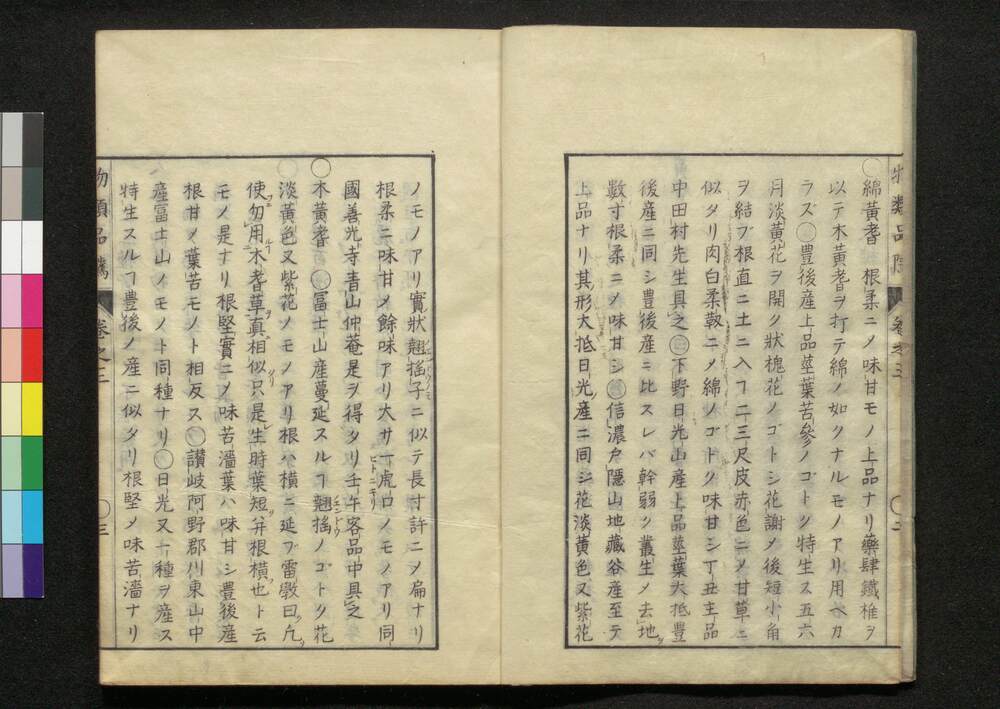 物類品隲 卷之三 〇二
〇綿黃耆 根柔ニメ味甘モノ上品ナリ藥肆鐵椎ヲ
以テ木黃耆ヲ打テ綿ノ如クナルモノアリ用ベカ
ラズ〇豊後産上品莖葉苦參ノゴトク特生ス五六
月淡黃花ヲ開ク狀槐花ノゴトシ花謝メ後短小角
ヲ結ブ根直ニ土ニ入ヿ二三尺皮赤色ニメ甘草ニ
似タリ肉白柔靱ニメ綿ノゴトク味甘シ丁丑主品
中田村先生具之〇下野日光山産上品莖葉大抵豊
後産ニ同シ豊後産ニ比スレバ幹弱ク叢生メ去地ヿ
數寸根柔ニメ味甘シ〇信濃戶隱山地藏谷産至テ
上品ナリ其形大抵日光産ニ同シ花淡黃色又紫花
ノモノアリ實狀翹搖子ニ似テ長寸許ニメ扁ナリ
根柔ニ味甘メ餘味アリ大サ一虎口ノモノアリ同
國善光寺青山仲菴是ヲ得タリ壬午客品中具之
〇木黃耆 〇富士山産蔓延スルヿ翹搖ノゴトク花
淡黃色又紫花ノモノアリ根ハ橫ニ延ブ雷斅曰凢
使勿用木耆草真相似只是生時葉短并根橫也ト云
モノ是ナリ根堅實ニメ味苦濇葉ハ味甘シ豊後産
根甘メ葉苦モノト相反ス〇讃岐阿野郡川東山中
産富士山ノモノト同種ナリ〇日光又一種ヲ産ス
特生スルヿ豊後ノ産ニ似タリ根堅メ味苦濇ナリ
物類品隲 卷之三 〇三